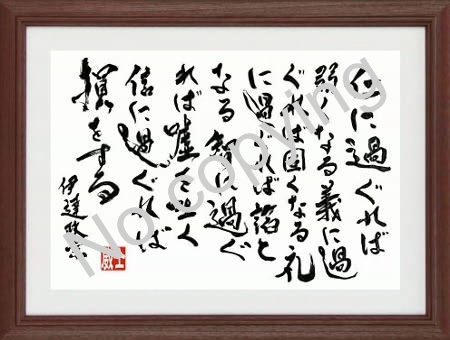 仁に過ぐれば
弱くなる義に過
ぐれば固くなる礼
に過ぐれば諂と
なる智に過ぐ
れば嘘をつく
信に過ぐれば
損をする
伊達政宗
No copying